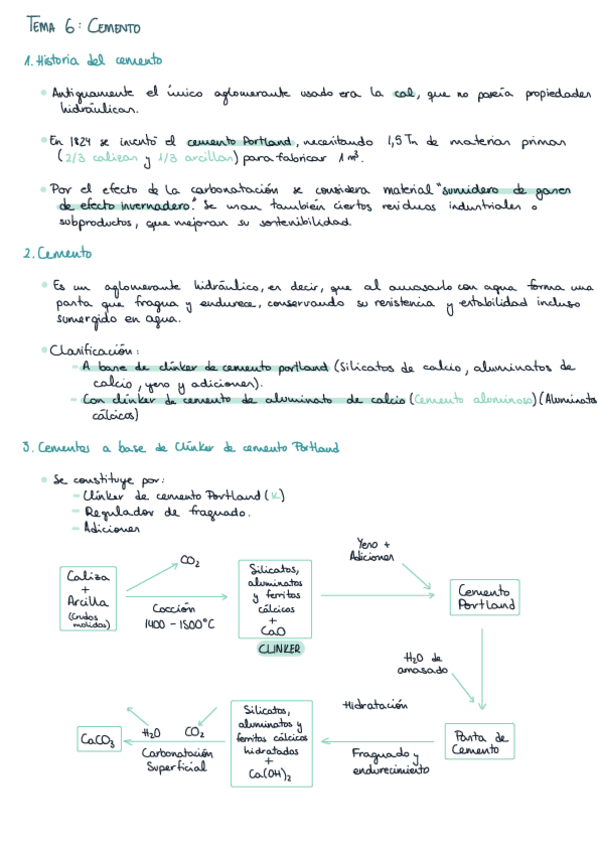 TEMA 6: CEMENTO
1. Historia del cemento
Antiguamente el único aglomerante usado era la cal, que no poseía propiedades
hidráulicas.
En 1824 se inventó el cemento Portland, necesitando 1,5 Tn de materias primas
(2/3 calizas y 1/3 arcillas) para fabricar 1 m³.
Por el efecto de la carbonatación se considera material "sumidero de gases
de efecto invernadero". Se usan también ciertos residuos industriales o
subproductos, que mejoran su sostenibilidad.
2. Cemento
Es un aglomerante hidráulico, es decir, que al amasarlo con agua forma una
pasta que fragua y endurece, conservando su resistencia y estabilidad incluso
sumergido en agua.
Clasificación:
- A base de clinker de cemento portland (Silicatos de calcio, aluminatos de
calcio, yeso y adiciones).
- Con clinker de cemento de aluminato de calcio (Cemento aluminoso) (Aluminatos
cálcicos)
3. Cementos a base de Clinker de cemento Portland
Se constituye por:
- Clinker de cemento Portland (K)
- Regulador de fraguado.
- Adiciones
Caliza
+
Arcilla
(crudos
molidos)
CO₂
Cocción
1400 - 1500°C
Silicatos,
aluminatos
y ferritos
cálcicos
+
CaO
CLINKER
Yeso +
Adiciones
Cemento
Portland
H₂O de
amasado
Pasta de
Cemento
Hidratación
Fraguado y
endurecimiento
Silicatos,
aluminatos y
ferritos cálcicos
hidratados
+
Ca(OH)₂
H₂O CO₂
Carbonatación
Superficial
CaCO₃